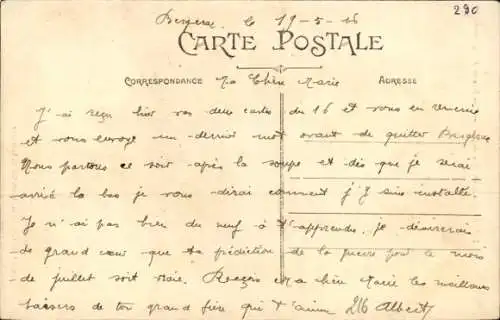 290
Bergerac le 19-5-16
CARTE POSTALE
CORRESPONDANCE Ma Chère Marie ADRESSE
J'ai reçu hier vos deux cartes du 16 et vous en remercie
et vous envoye un dernier mot avant de quitter Bergerac
Nous partons ce soir après la soupe et dès que je serai
arrivé la bas je vous dirai comment j'y suis installé.
Je n'ai pas bien du neuf à t'apprendre. je désirerais
de grand cœur que ta prédiction de la guerre pour le mois
de juillet soit vraie. Reçois ma chère Marie les meilleurs
baisers de ton grand frère qui t'aime Albert